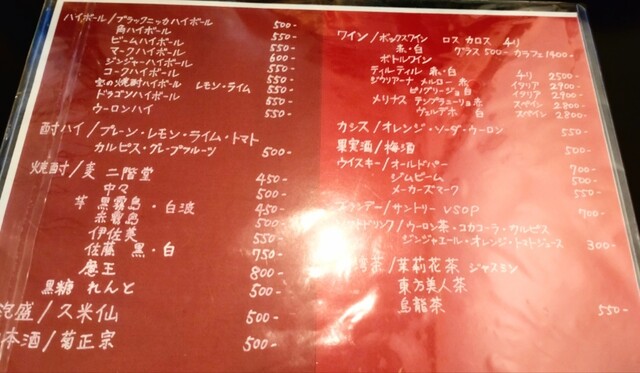 ハイボール/ブラックニッカハイボール 500-
角ハイボール 550-
ビームハイボール 550-
マークハイボール 600-
ジンジャーハイボール 550-
コークハイボール 550-
宝の焼酎ハイボール レモン・ライム 550-
ドラゴンハイボール 550-
ウーロンハイ 500-
酎ハイ/プレーン・レモン・ライム・トマト
カルピス・グレープフルーツ 500-
焼酎/麦 二階堂 450-
中々 500-
芋 黒霧島・白波 450-
赤霧島 500-
伊佐美 550-
佐藤 黒・白 750-
魔王 800-
黒糖 れんと 500-
泡盛/久米仙 500-
本酒/菊正宗 500-
ワイン/ボックスワイン ロス カロス チリ
赤・白 グラス 500- カラフェ1400-
ボトルワイン
ティルティル 赤・白 チリ 2500-
ジウリアーナ メルロー 赤 イタリア 2900-
ピリグリージョ 白 イタリア 2900-
メリナス テンプラニーリョ 赤 スペイン 2800-
ヴェルデホ 白 スペイン 2800-
カシス/オレンジ・ソーダ・ウーロン 550-
果実酒/梅酒 500-
ウイスキー/オールドパー 700-
ジムビーム 500-
メーカーズマーク 550-
ブランデー/サントリー VSOP 700-
ドリンク/ウーロン茶・コカコーラ・カルピス
ジンジャエール・オレンジ・トマトジュース 300-
茶/茉莉花茶 ジャスミン
東方美人茶
烏龍茶 550-